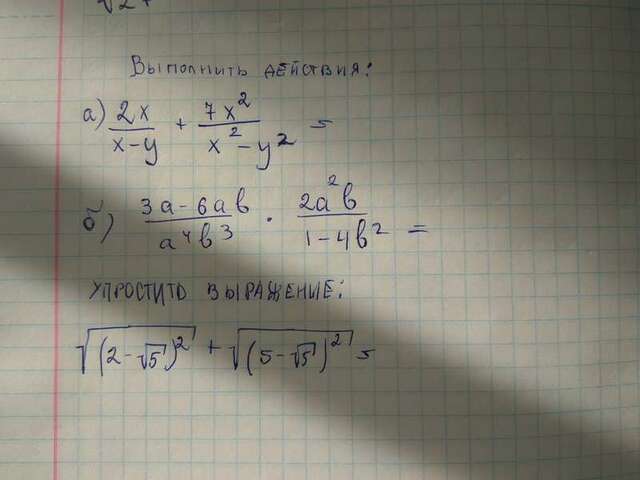 √2+
Выполнить действия:
а) 2x/(x-y) + 7x²/(x²-y²) =
б) (3a-6ab)/(a⁴b³) · (2a²b)/(1-4b²) =
упростить выражение:
√(2-√5)² + √(5-√5)² =